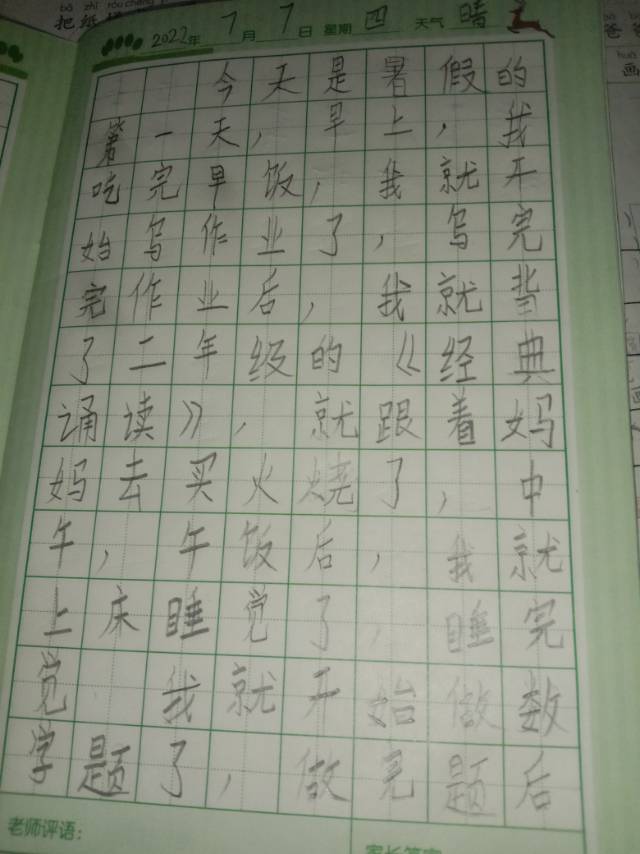 2022年 7月 7日 星期 四 天气 晴
今天是暑假的
第一天，早上，我
吃完早饭，我就开
始写作业了，写完
完作业后，我就背
了二年级的《经典
诵读》，就跟着妈
妈去买火烧了，中
午，午饭后，我就
上床睡觉了，睡完
觉 我就开始做数
学题了，做完题后
老师评语：